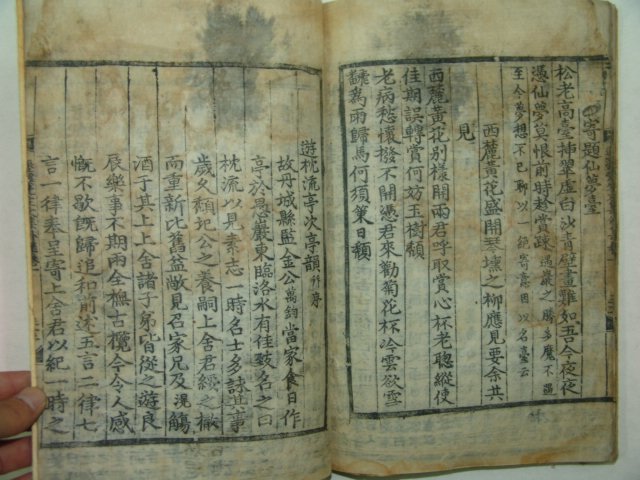 寄題仙夢臺
松老高臺揷翠虛白沙靑壁畫難如吾今夜夜
憑仙夢莫恨前時趁賞疎
過巖之勝多魔不遇
至今夢想不已聊以一絶寄意因以名臺云
西麓黃花盛開
之柳應見要余共
見
西麓黃花別樣開雨君呼取賞心杯老聰縱使
佳期誤轉賞何妨玉樹頹
老病愁懷撥不開憑君來勸菊花杯冷雲欲雪
爲雨歸馬何須策日頹
遊枕流亭次亭韻 幷序
故丹城縣監金公萬鈞當家食日作
亭於恩巖東臨洛水有佳致名之曰
枕流以見素志一時名士多詠其事
歲久頹圮公之養嗣上舍君
而重新比舊益敞見召家兄及滉觴
酒于其上上舍諸子弟皆從之遊良
辰樂事不期兩全撫古
今令人感
慨不歇旣歸追和前述五言二律七
言一律奉呈寄上舍君以紀一時之